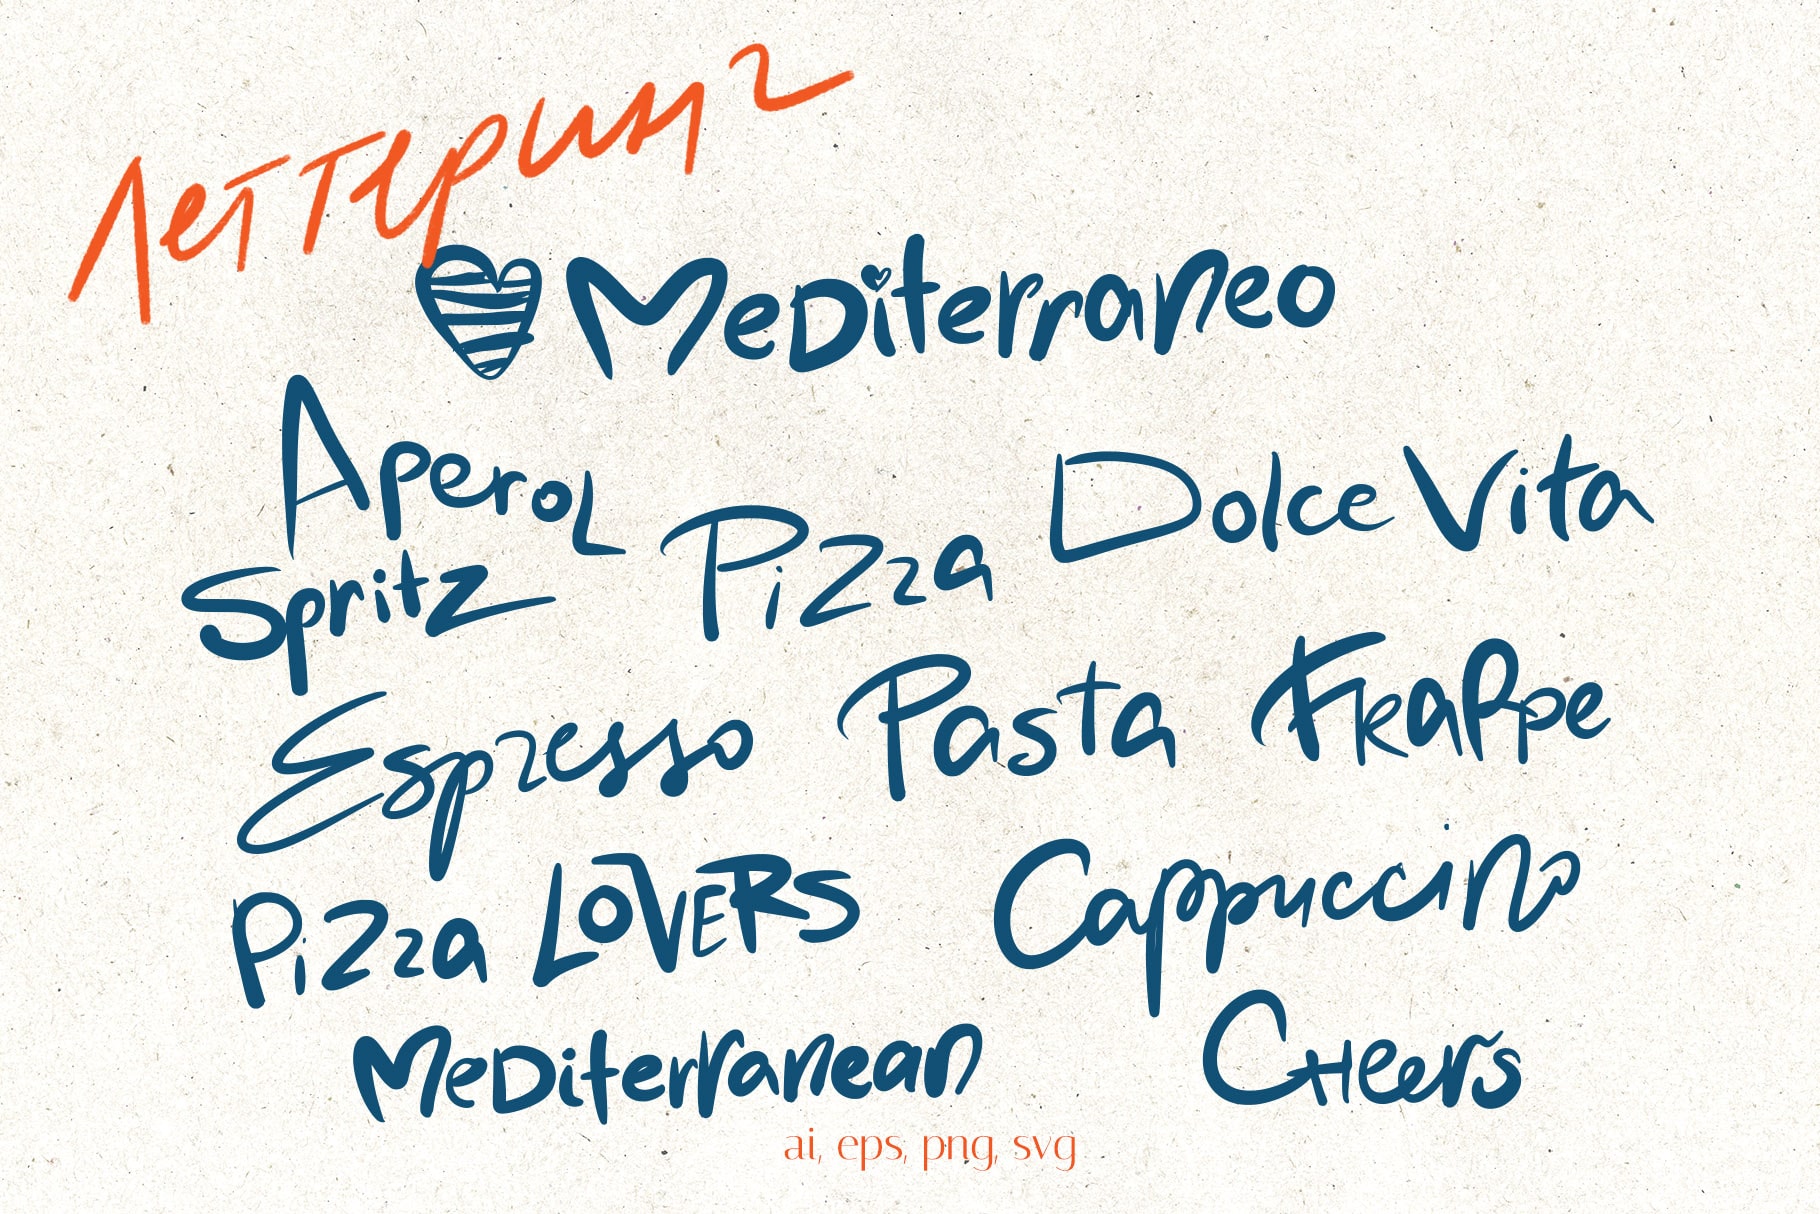 Леттеринг
Mediterraneo
Aperol
Spritz
Pizza
Dolce Vita
Espresso
Pasta
Frappe
Pizza LOVERS
Cappuccino
Mediterranean
Cheers
ai, eps, png, svg